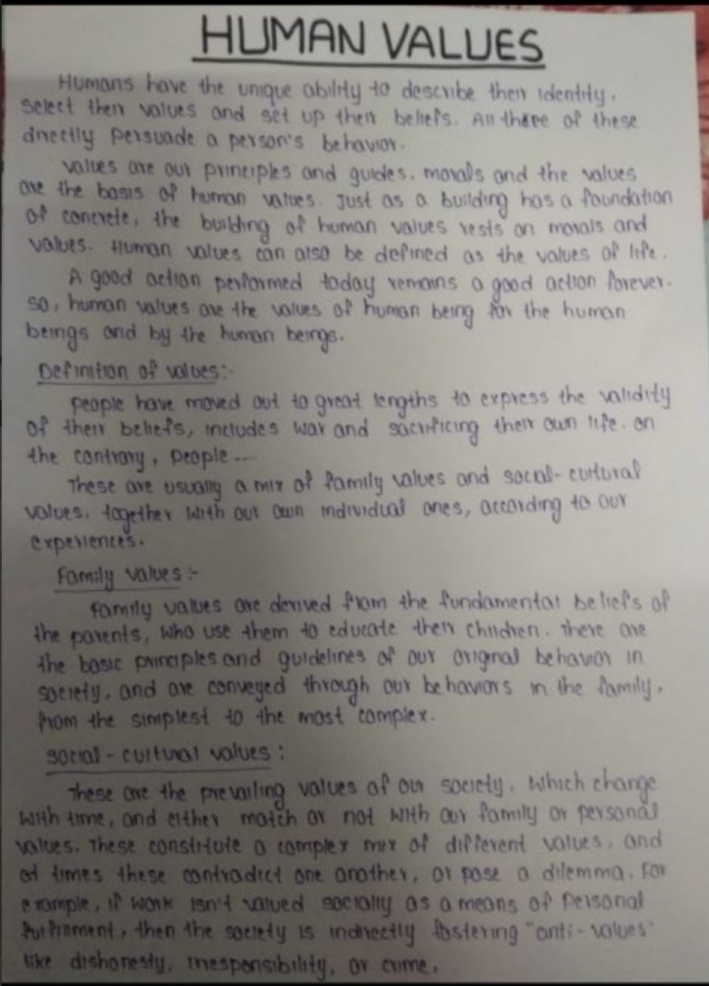 HUMAN VALUES
Humans have the unique ability to describe their identity,
select their values and set up their beliefs. All three of these
directly persuade a person's behavior.
Values are our principles and guides. morals and the values
are the basis of human values. Just as a building has a foundation
of concrete, the building of human values rests on morals and
values. Human values can also be defined as the values of life.
A good action performed today remains a good action forever.
so, human values are the values of human being for the human
beings and by the human beings.
Definition of values:-
People have moved out to great lengths to express the validity
of their beliefs, includes war and sacrificing their own life. on
the contrary, people ...
These are usually a mix of family values and social-cultural
values, together with our own individual ones, according to our
experiences.
Family values :-
Family values are derived from the fundamental beliefs of
the parents, who use them to educate their children. There are
the basic principles and guidelines of our original behavior in
society, and are conveyed through our behaviors in the family,
from the simplest to the most complex.
social - cultural values :
These are the prevailing values of our society, which change
with time, and either match or not with our family or personal
values. These constitute a complex mix of different values, and
at times these contradict one another, or pose a dilemma. For
example, if work isn't valued socially as a means of personal
fulfinment, then the society is indirectly fostering "anti-values"
like dishonesty, irresponsibility, or crime.